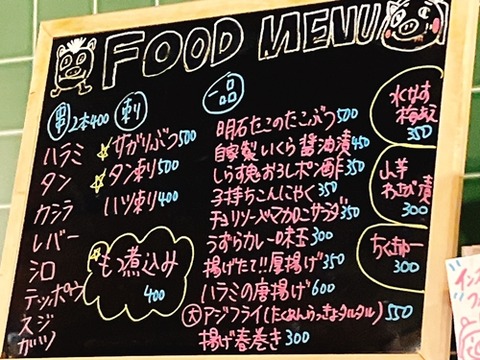 FOOD MENU
串 2本400
ハラミ
タン
カシラ
レバー
シロ
テッポウ
スジ
ガツ
刺り
サガリぶつ500
タン刺り500
ハツ刺り400
もつ煮込み
400
一品
明石たこのたこぶつ500
自家製いくら醤油漬450
しらす兎おろしポン酢350
子持ちこんにゃく350
チョリソーとマカロニサラダ350
うずらカレー味玉300
揚げたて!!厚揚げ350
ハラミの唐揚げ600
大アジフライ(たくあんらっきょタルタル)550
揚げ春巻き300
水なす
350
山芋
わさび漬
300
ちくきゅー
300